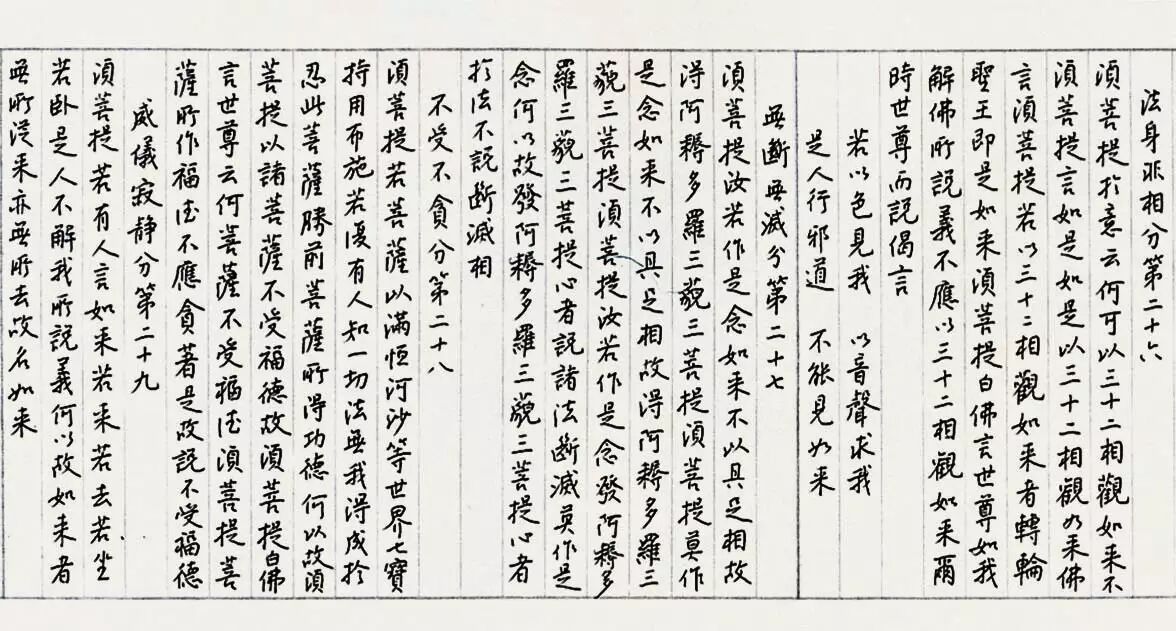 法身非相分第二十六
須菩提於意云何可以三十二相觀如来不
須菩提言如是如是以三十二相觀如来佛
言須菩提若以三十二相觀如来者轉輪
聖王即是如来須菩提白佛言世尊如我
解佛所説義不應以三十二相觀如来爾
時世尊而説偈言
若以色見我 以音聲求我
是人行邪道 不能見如来
無斷無滅分第二十七
須菩提汝若作是念如来不以具足相故
得阿耨多羅三藐三菩提須菩提莫作
是念如来不以具足相故得阿耨多羅三
藐三菩提須菩提汝若作是念發阿耨多
羅三藐三菩提心者説諸法斷滅莫作是
念何以故發阿耨多羅三藐三菩提心者
於法不説斷滅相
不受不貪分第二十八
須菩提若菩薩以滿恒河沙等世界七寶
持用布施若復有人知一切法無我得成於
忍此菩薩勝前菩薩所得功德何以故須
菩提以諸菩薩不受福德故須菩提白佛
言世尊云何菩薩不受福德須菩提菩
薩所作福德不應貪著是故説不受福德
威儀寂静分第二十九
須菩提若有人言如来若来若去若坐
若卧是人不解我所説義何以故如来者
無所從来亦無所去故名如来